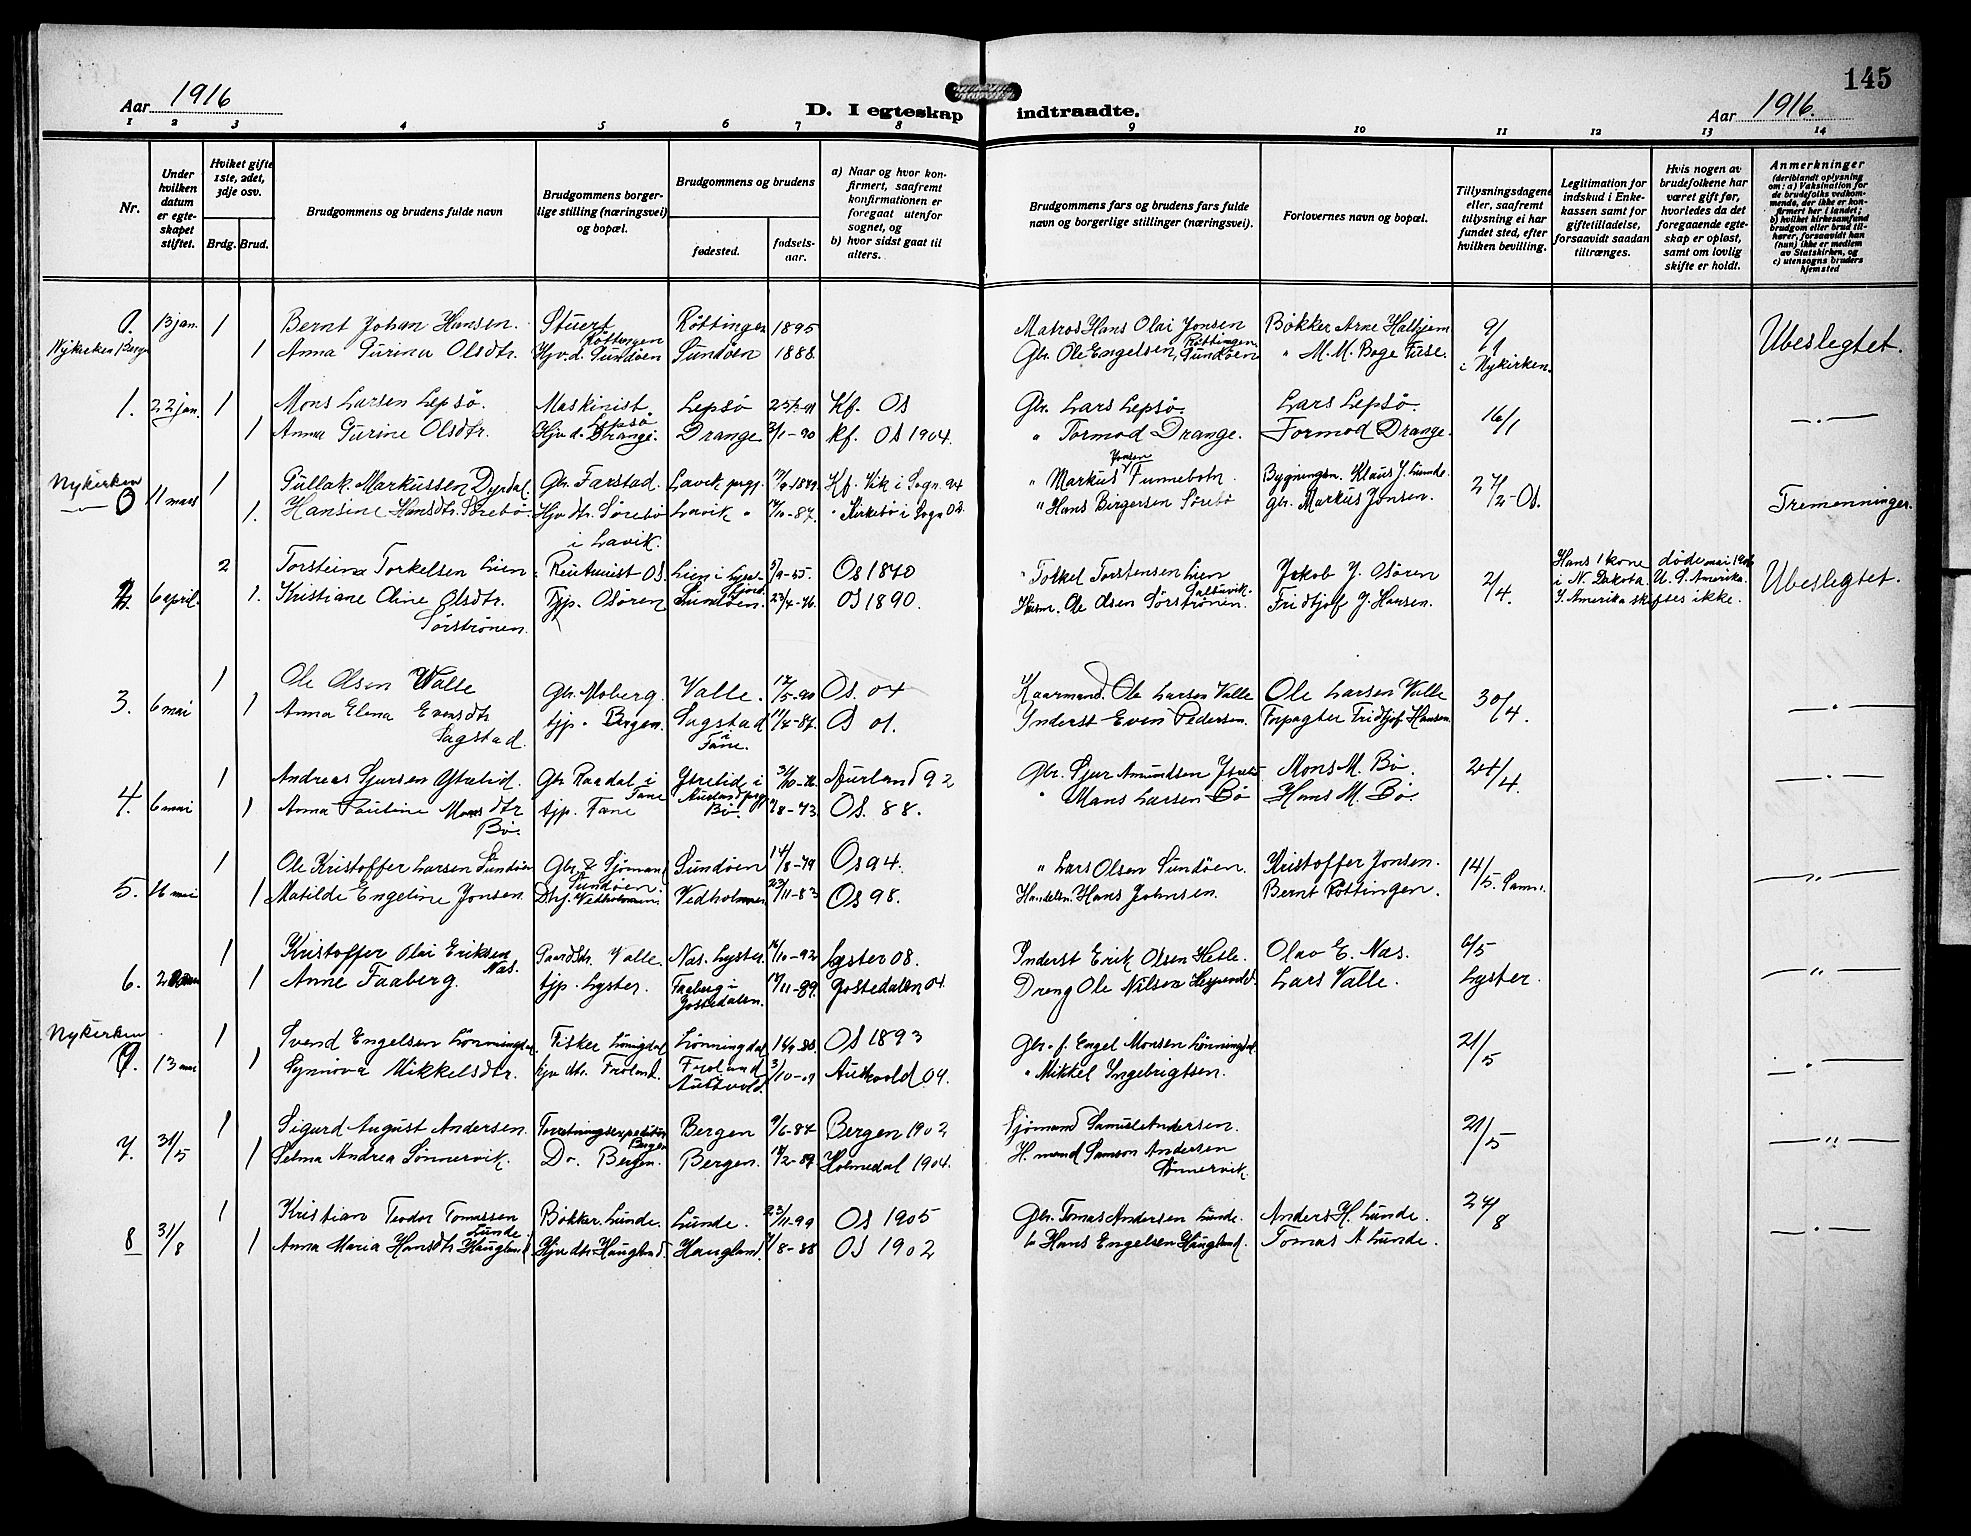 145
Aar 1916
D. I egteskap indtraadte.
Aar 1916.
1 2 3 4 5 6 7 8 9 10 11 12 13 14
Nr.
Under hvilken datum er egteskapet stiftet.
Hvilket gifte 1ste, 2det, 3dje osv.
Brdg. Brud.
Brudgommens og brudens fulde navn
Brudgommens borgerlige stilling (næringsvei) og bopæl.
Brudgommens og brudens
fødested.
fødselsaar.
a) Naar og hvor konfirmert, saafremt konfirmationen er foregaat utenfor sognet, og
b) hvor sidst gaat til alters.
Brudgommens fars og brudens fars fulde navn og borgerlige stillinger (næringsvei).
Forlovernes navn og bopæl.
Tillysningsdagene eller, saafremt tillysning ei har fundet sted, efter hvilken bevilling.
Legitimation for indskud i Enkekassen samt for giftetilladelse, forsaavidt saadan tiltrænges.
Hvis nogen av brudefolkene har været gift før, hvorledes da det foregaaende egteskap er opløst, samt om lovlig skifte er holdt.
Anmerkninger
(deriblandt oplysning om: a) Vaksination for de brudefolks vedkommende, der ikke er konfirmert her i landet; b) hvilket kirkesamfund brudgom eller brud tilhører, forsaavidt han (hun) ikke er medlem av Statskirken, og c) utensogns bruders hjemsted
0. 13 jan. 1 Bernt Johan Hansen. Stuert Röttingen Röttingen 1895 Matros Hans Olai Jonsen Röttingen. Bøkker Arne Halhjem 9/1 Ubeslegtet.
Nykirken 1 Anna Gurina Olsdtr. Hjv.d. Sundöen Sundöen 1888. Gbr. Ole Engelsen, Sundöen " M. M. Boge Fuse. i Nykirken.
1. 22 jan. 1 Mons Larsen Lepsö. Maskinist. Lepsö Lepsö Kf. Os Gbr. Lars Lepsö. Lars Lepsö. 16/1
1 Anna Gurine Olsdtr. Hjv.d. Drange. Drange 2/1-90 Kf. Os 1904. " Tormod Drange. Tormod Drange.
Nykirken 0 11 mars 1 Gullak Markussen Dyrdal. Gbr. Farstad. Lavik prgj. Kf. Vik i Sogn 94 " Markus Jonsen Tunnebotn. Bygningsm. Klaus J. Lunde. 27/2 Os. Tremenninger.
1. Hansine Hansdtr. Sørebø. Hjv.dtr. Sørebø i Lavik. Lavik " " Kirkebø i Sogn 02. " Hans Birgersen Sørebø gbr. Markus Jonsen.
2. 6 april. 2 Torsteina Torkelsen Lien Os. Lien i Os 1870 " Torkel Torstensen Lien Jakob J. Osören 2/4. Hans 1 kone døde mai 1906 i N. Dakota. U. S. Amerika. I. Amerika skiftes ikke. Ubeslegtet.
1. Kristiane Oline Olsdtr. Sørströnen. Tjp. Osören Sundöen. 23/4-76. Os 1890. Husm. Ole Olsen Sørströnen. Fridtjof J. Hansen.
3. 6 mai 1 Ole Olsen Valle Gbr. Moberg. Valle. 12/5-90 Os. 04 Kaarmand. Ole Larsen Valle Ole Larsen Valle 30/4.
1 Anna Elena Evensdtr Sagstad. tjp. Bergen. Sagstad i Fane. Os 01. Inderst Even Pedersen. Forpagter Fridtjof Hansen.
4. 6 mai 1 Andreas Sjursen Ytrelid. Gbr. Raadal i Fane Ytrelid i Aurland prgj. Aurland 92 Gbr. Sjur Amundsen Ytrelid Mons M. Bø. 24/4.
1 Anna Pauline Monsdtr Bø. tjp. Fane Bø. Os. 88. " Mons Larsen Bø Hans M. Bø.
5. 26 mai 1 Ole Kristoffer Larsen Sundöen Gbr & Sjömand Sundöen. Sundöen 14/8-79 Os 94. " Lars Olsen Sundöen. Kristoffer Jonsen. 14/5.
1 Matilde Engeline Jonsen. Vedholmen. Vedholmen 23/11-83 Os 98. Handelsm. Hans Johnsen. Bernt Röttingen.
6. 1 Kristoffer Olai Eriksen Nas. Gaardbr. Valle. Nas. Lyster. 16/10-92 Lyster 08. Inderst Erik Olsen Hetle Olav E. Nas. 6/5
1 Anne Faaberg. tjp. Lyster. Faaberg i Jostedalen. 17/11-89. Jostedalen 04. Dreng Ole Nilsen Lars Valle. Lyster.
Nykirken 0. 13 mai 1 Svend Engelsen Lönningdal. Fisker Lönningdal Lönningdal Os 1893 Gbr. f. Engel Monsen Lönningdal. 21/5
1 Synnöva Mikkelsdtr. hjv.dtr. Froland. Froland Austevold. Austevold 04. " Mikkel Ingebrigtsen.
7. 31/5 1 Sigurd August Andersen. Forretningsexpeditör Bergen Bergen 9/6-84 Bergen 1902 Sjömand Samuel Andersen. 21/5
1 Selma Andrea Sönnervik. Do. Bergen. Bergen. Holmedal 1904. H.mand Samson Andersen Sönnervik.
8 31/8 1 Kristian Teodor Tomassen Lunde. Bökker. Lunde. Lunde. 23/11-99 Os 1905 Gbr. Tomas Andersen Lunde. Anders H. Lunde. 27/8
1 Anna Maria Hansdtr Haugland Hjv.dtr Haugland Haugland. Os 1902 " Hans Engelsen Haugland. Tomas A Lunde.